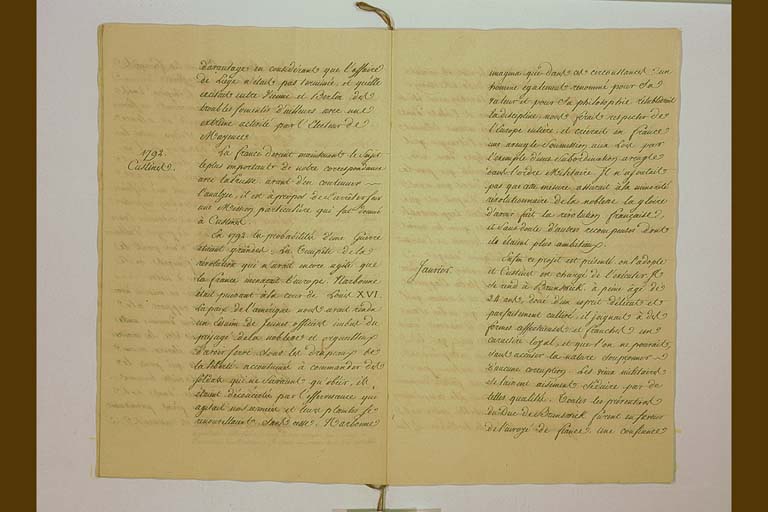 davantage en considérant que l'affaire
de Liège n'était pas terminée, et qu'elle
excitait entre Vienne et Berlin des
troubles fomentés d'ailleurs avec une
extrême activité par l'Electeur de
Mayence.
1792.
Custines.
La france devient maintenant le sujet
le plus important de notre correspondance
avec la Prusse. avant d'en continuer
l'analyse, il est à propos de s'arrêter sur
une Mission particulière qui fut donné
à Custine.
En 1792 la probabilité d'une Guerre
étaient grandes. La Tempête de la
révolution qui n'avait encore agité que
la france menaçait l'europe. Narbonne
était puissant à la cour de Louis XVI.
La paix de l'amérique nous avait rendu
un Essaim de Jeunes officiers imbus du
préjugé de la noblesse et orgueilleux
d'avoir servi sous les drapeaux de
la liberté. accoutumés à commander des
soldats qui ne savaient qu'obéir, ils
étaient déconcertés par l'effervescence qui
agitait nos armées et leurs plaintes se
renouvellaient sans cesse. Narbonne
imagina que dans ces circonstances un
homme également renommé pour sa
valeur et pour sa philosophie, rétablirait
la discipline, nous ferait respecter de
l'Europe entière, et créerait en france
une aveugle soumission aux Lois par
l'exemple d'une subordination aveugle
dans l'ordre Militaire. Il n'ajoutait
pas que cette mesure assurait à la minorité
révolutionnaire de la noblesse la gloire
d'avoir fait la révolution française,
et sans doute d'autres récompenses dont
ils étaient plus ambitieux.
Janvier.
Enfin ce projet est présenté on l'adopte
et Custines est chargé de l'exécuter. Il
se rend à Brunswick, à peine âgé de
24 ans, doué d'un esprit délicat et
parfaitement cultivé, il joignait à des
formes affectueuses et franches un
caractère loyal, et que l'on ne pourrait,
sans accuser la nature soupçonner
d'aucune corruption. Les vieux militaires
se laissent aisément séduire par de
telles qualités. Toutes les préventions
du Duc de Brunswick furent en faveur
de l'envoyé de france. une confiance